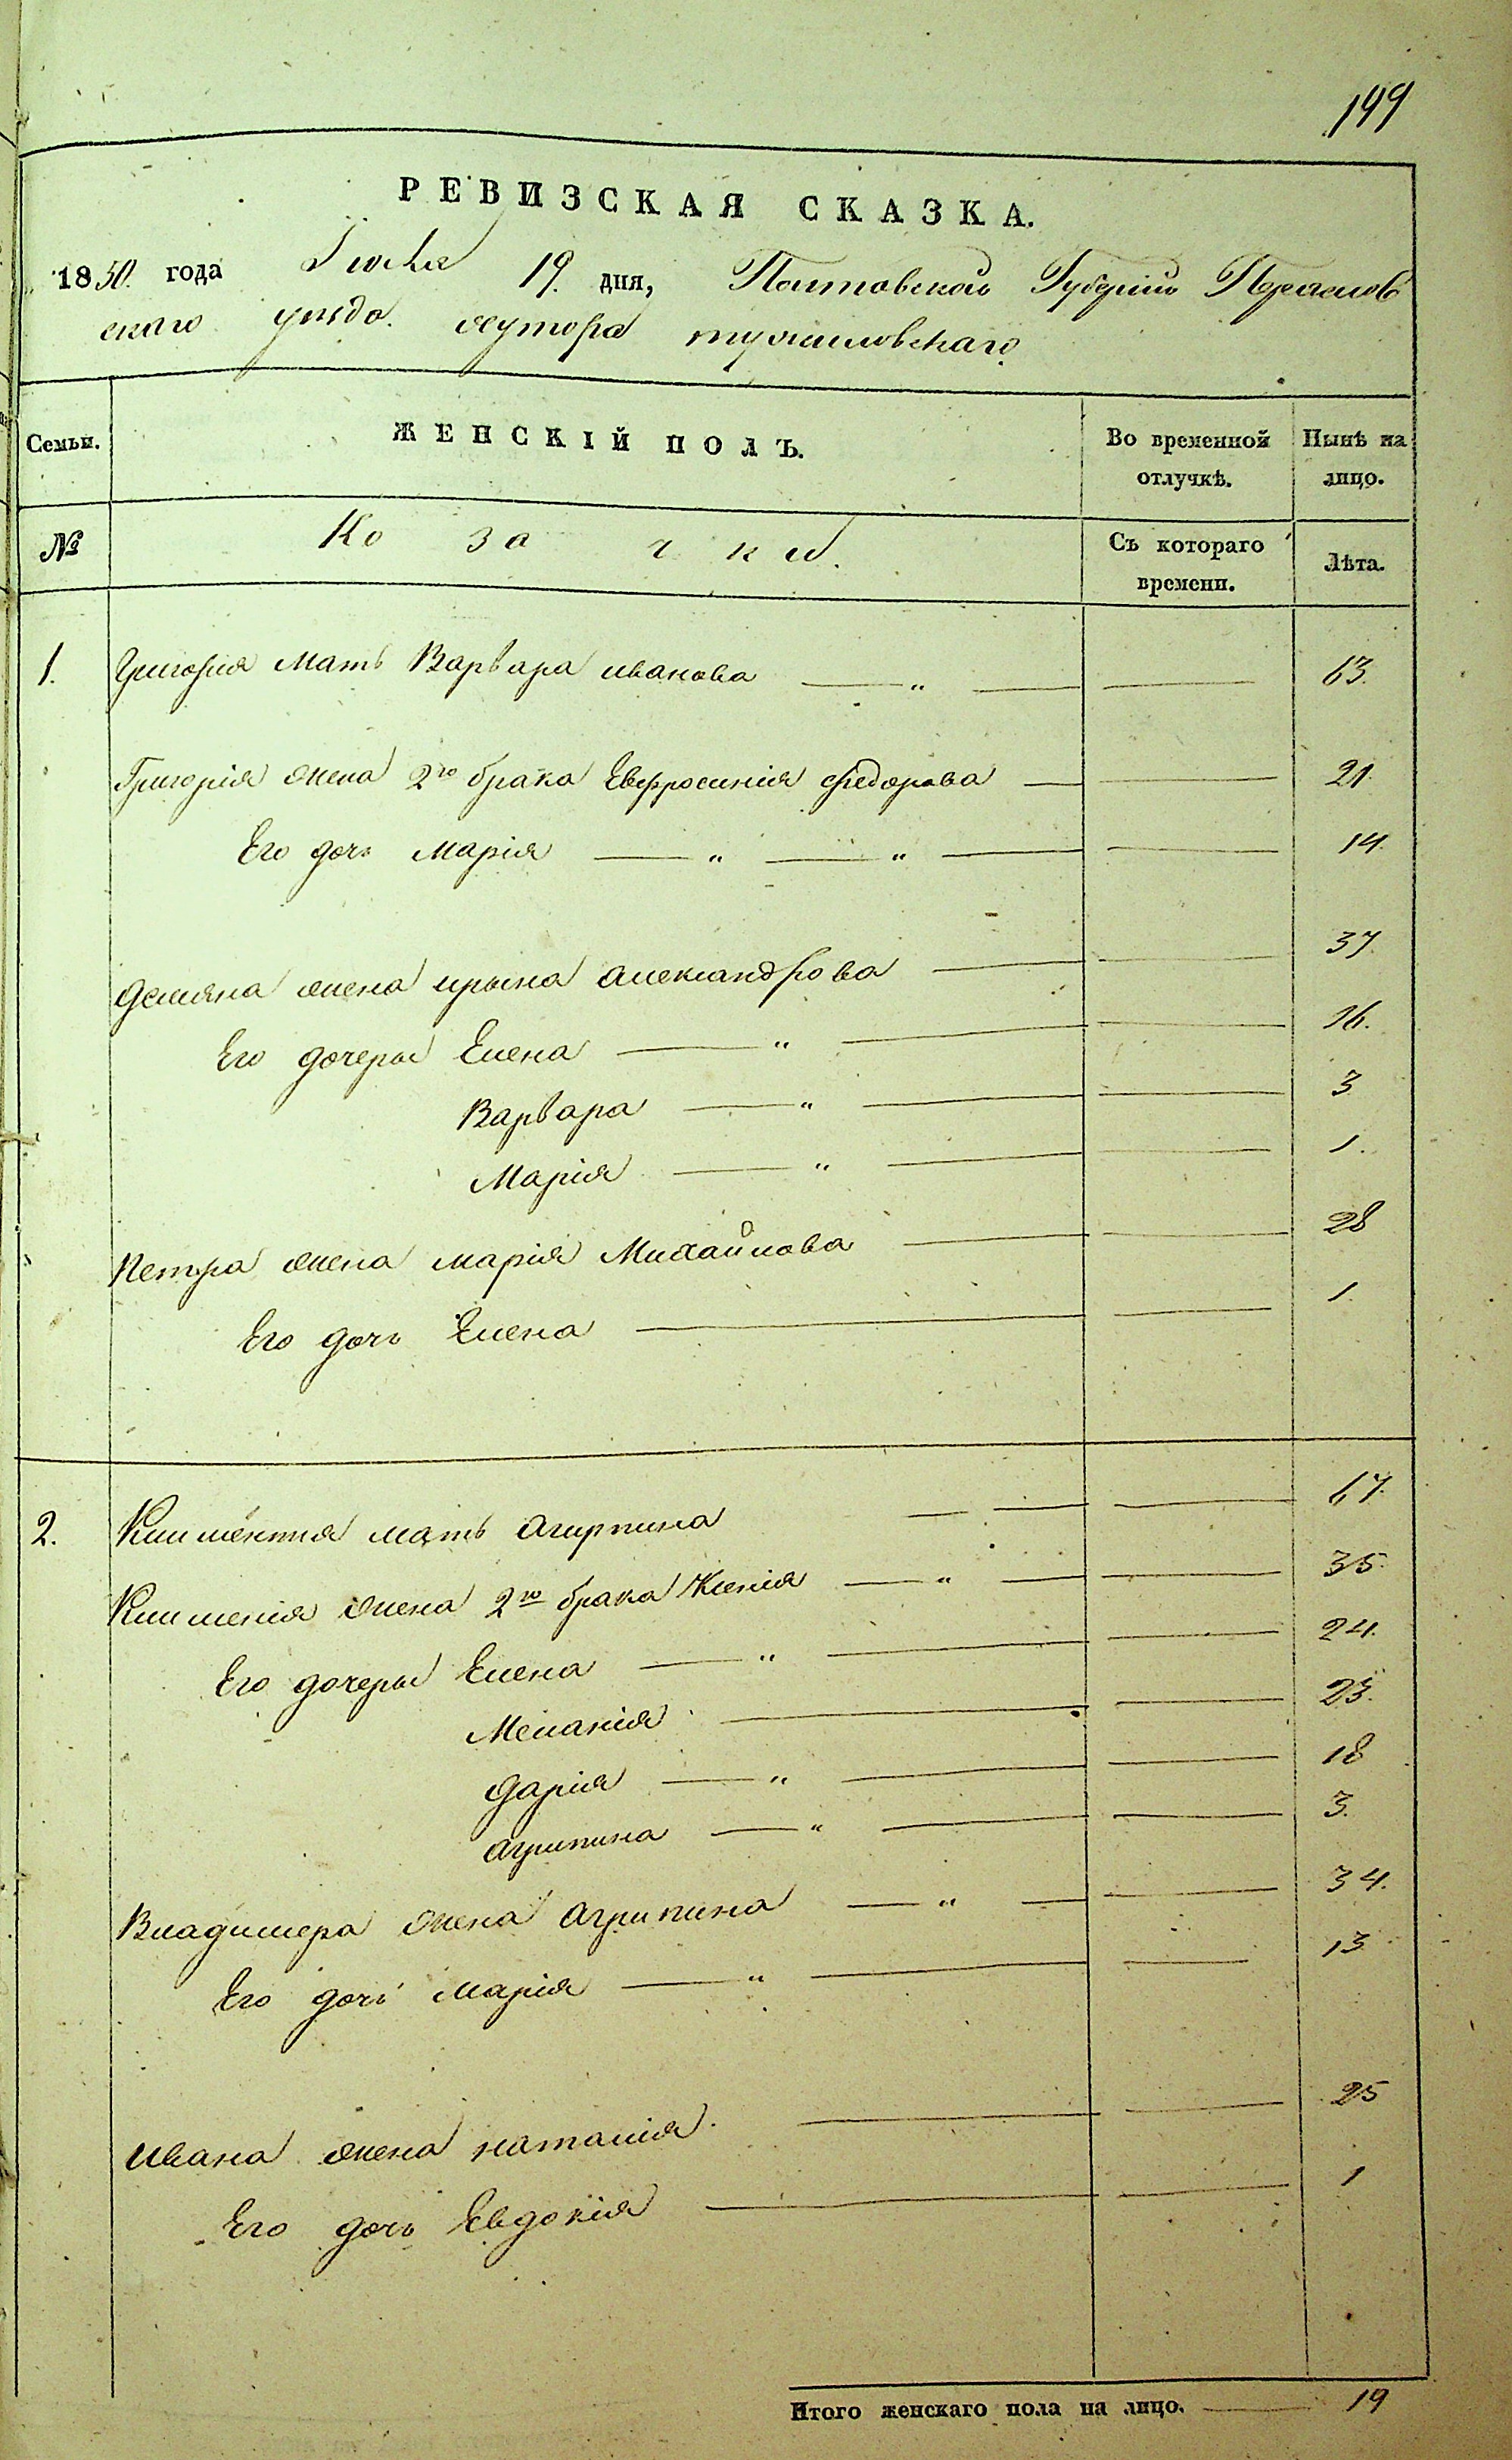 149
РЕВИЗСКАЯ СКАЗКА.
1850. года Июня 19. дня, Полтавской Губерніи Переяслов
скаго уезда. хутора тужиловскаго
Семьи. ЖЕНСКІЙ ПОЛЪ. Во временной отлучкѣ. Нынѣ на лицо.
№ Козачки. Съ котораго времени. Лѣта.
1. Григорія Мать Варвара иванова — „ — — 63.
Григорія жена 2го брака Евфросинія федорова — — 21.
Его дочь Марія — „ — „ — — 14.
демяна жена ирына александрова — — 37.
Его дочеры Елена — „ — — 16.
Варвара — „ — — 3
Марія — „ — — 1.
Петра жена марія Михайлова — — 28
Его дочь Елена — — 1.
2. Климентия мать агирпина — — — 67.
Климентія жена 2го брака Ксенія — „ — — 35.
Его дочеры Елена — „ — — 24.
Меланія — — 23.
дарія — „ — — 18
агрипина — „ — — 3.
Владимера жена агрипина — „ — — 34.
Его дочь марія — „ — — 13
Ивана жена наталія — — 25
Его дочь Евдокія — — 1
Итого женскаго пола на лицо. — 19